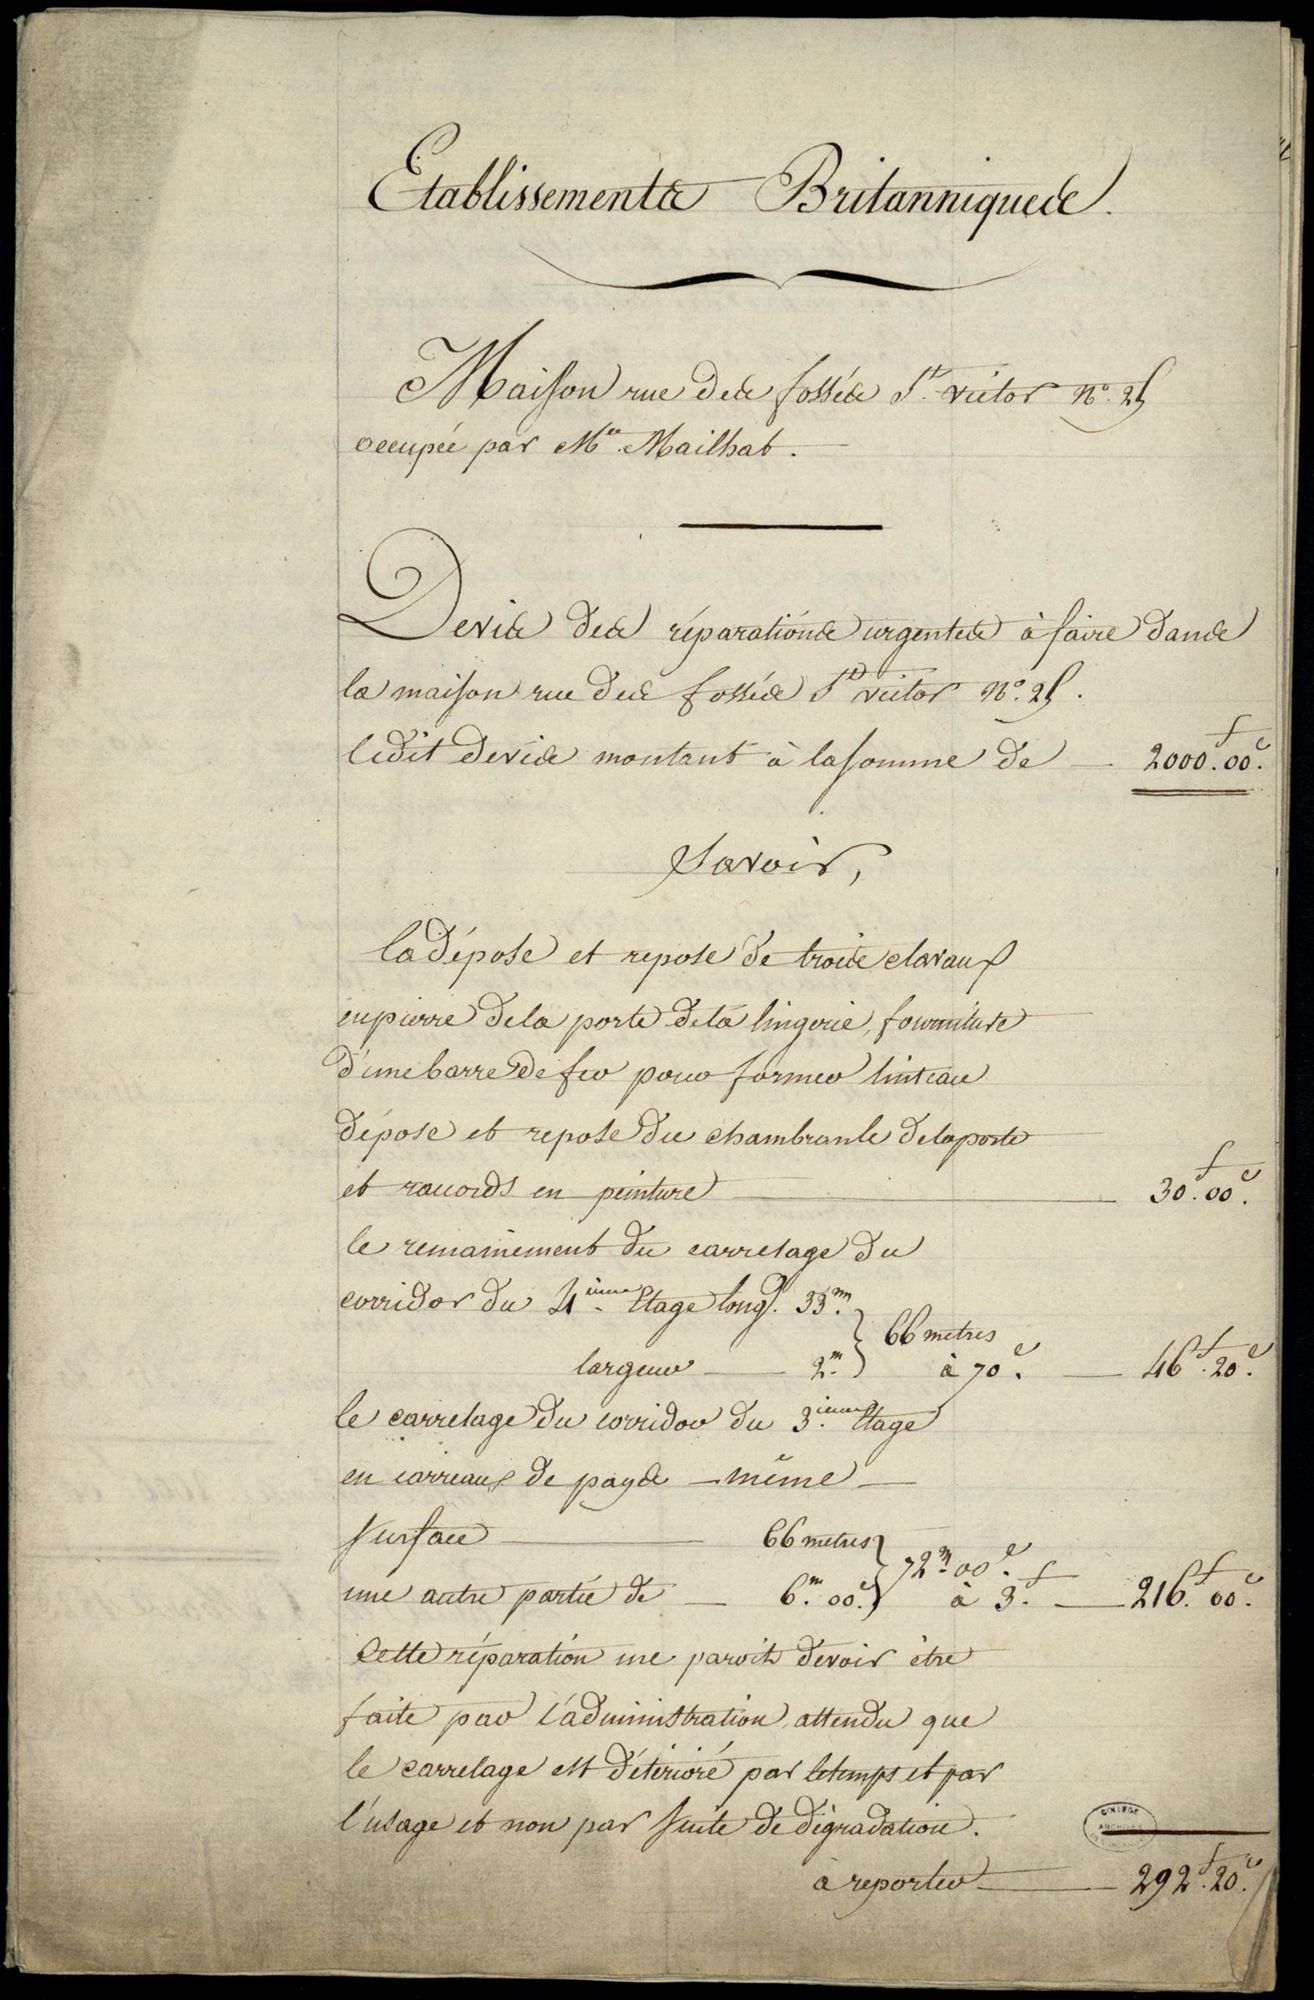 Etablissements Britanniques.
Maison rue des fossés St. victor No. 25
occupée par Mr. Mailhat.
Devis des réparations urgentes à faire dans
la maison rue des fossés St victor No. 25.
ledit devis montant à la somme de — 2000f.00c.
Savoir,
la dépose et repose de trois claveaux
en pierre de la porte de la lingerie, fourniture
d'une barre de fer pour former linteau
dépose et repose du chambranle de la porte
et raccords en peinture — 30f.00c.
le remaniement du carrelage du
corridor du 4ième étage longr. 33m.
largeur — 2m. } 66 metres à 70c. — 46f.20c.
le carrelage du corridor du 3ième étage
en carreaux de pays — même —
surface — 66 metres
une autre partie de — 6m.00c. } 72m.00c. à 3f. — 216f.00c.
Cette réparation me paroit devoir être
faite par l'administration, attendu que
le carrelage est détérioré par le temps et par
l'usage et non par suite de dégradation.
COLLEGE
ARCHIVES
DES IRLANDAIS
à reporter — 292f.20c.